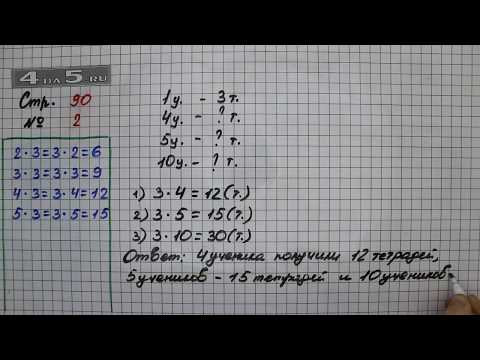 4 НА 5.RU
Стр. 90
№ 2
2·3=3·2=6
3·3=3·3=9
4·3=3·4=12
5·3=3·5=15
1у. - 3т.
4у. - ? т.
5у. - ? т.
10у. - ? т.
1) 3·4=12(т.)
2) 3·5=15(т.)
3) 3·10=30(т.)
Ответ: 4 ученика получили 12 тетрадей,
5 учеников - 15 тетрадей и 10 учеников-